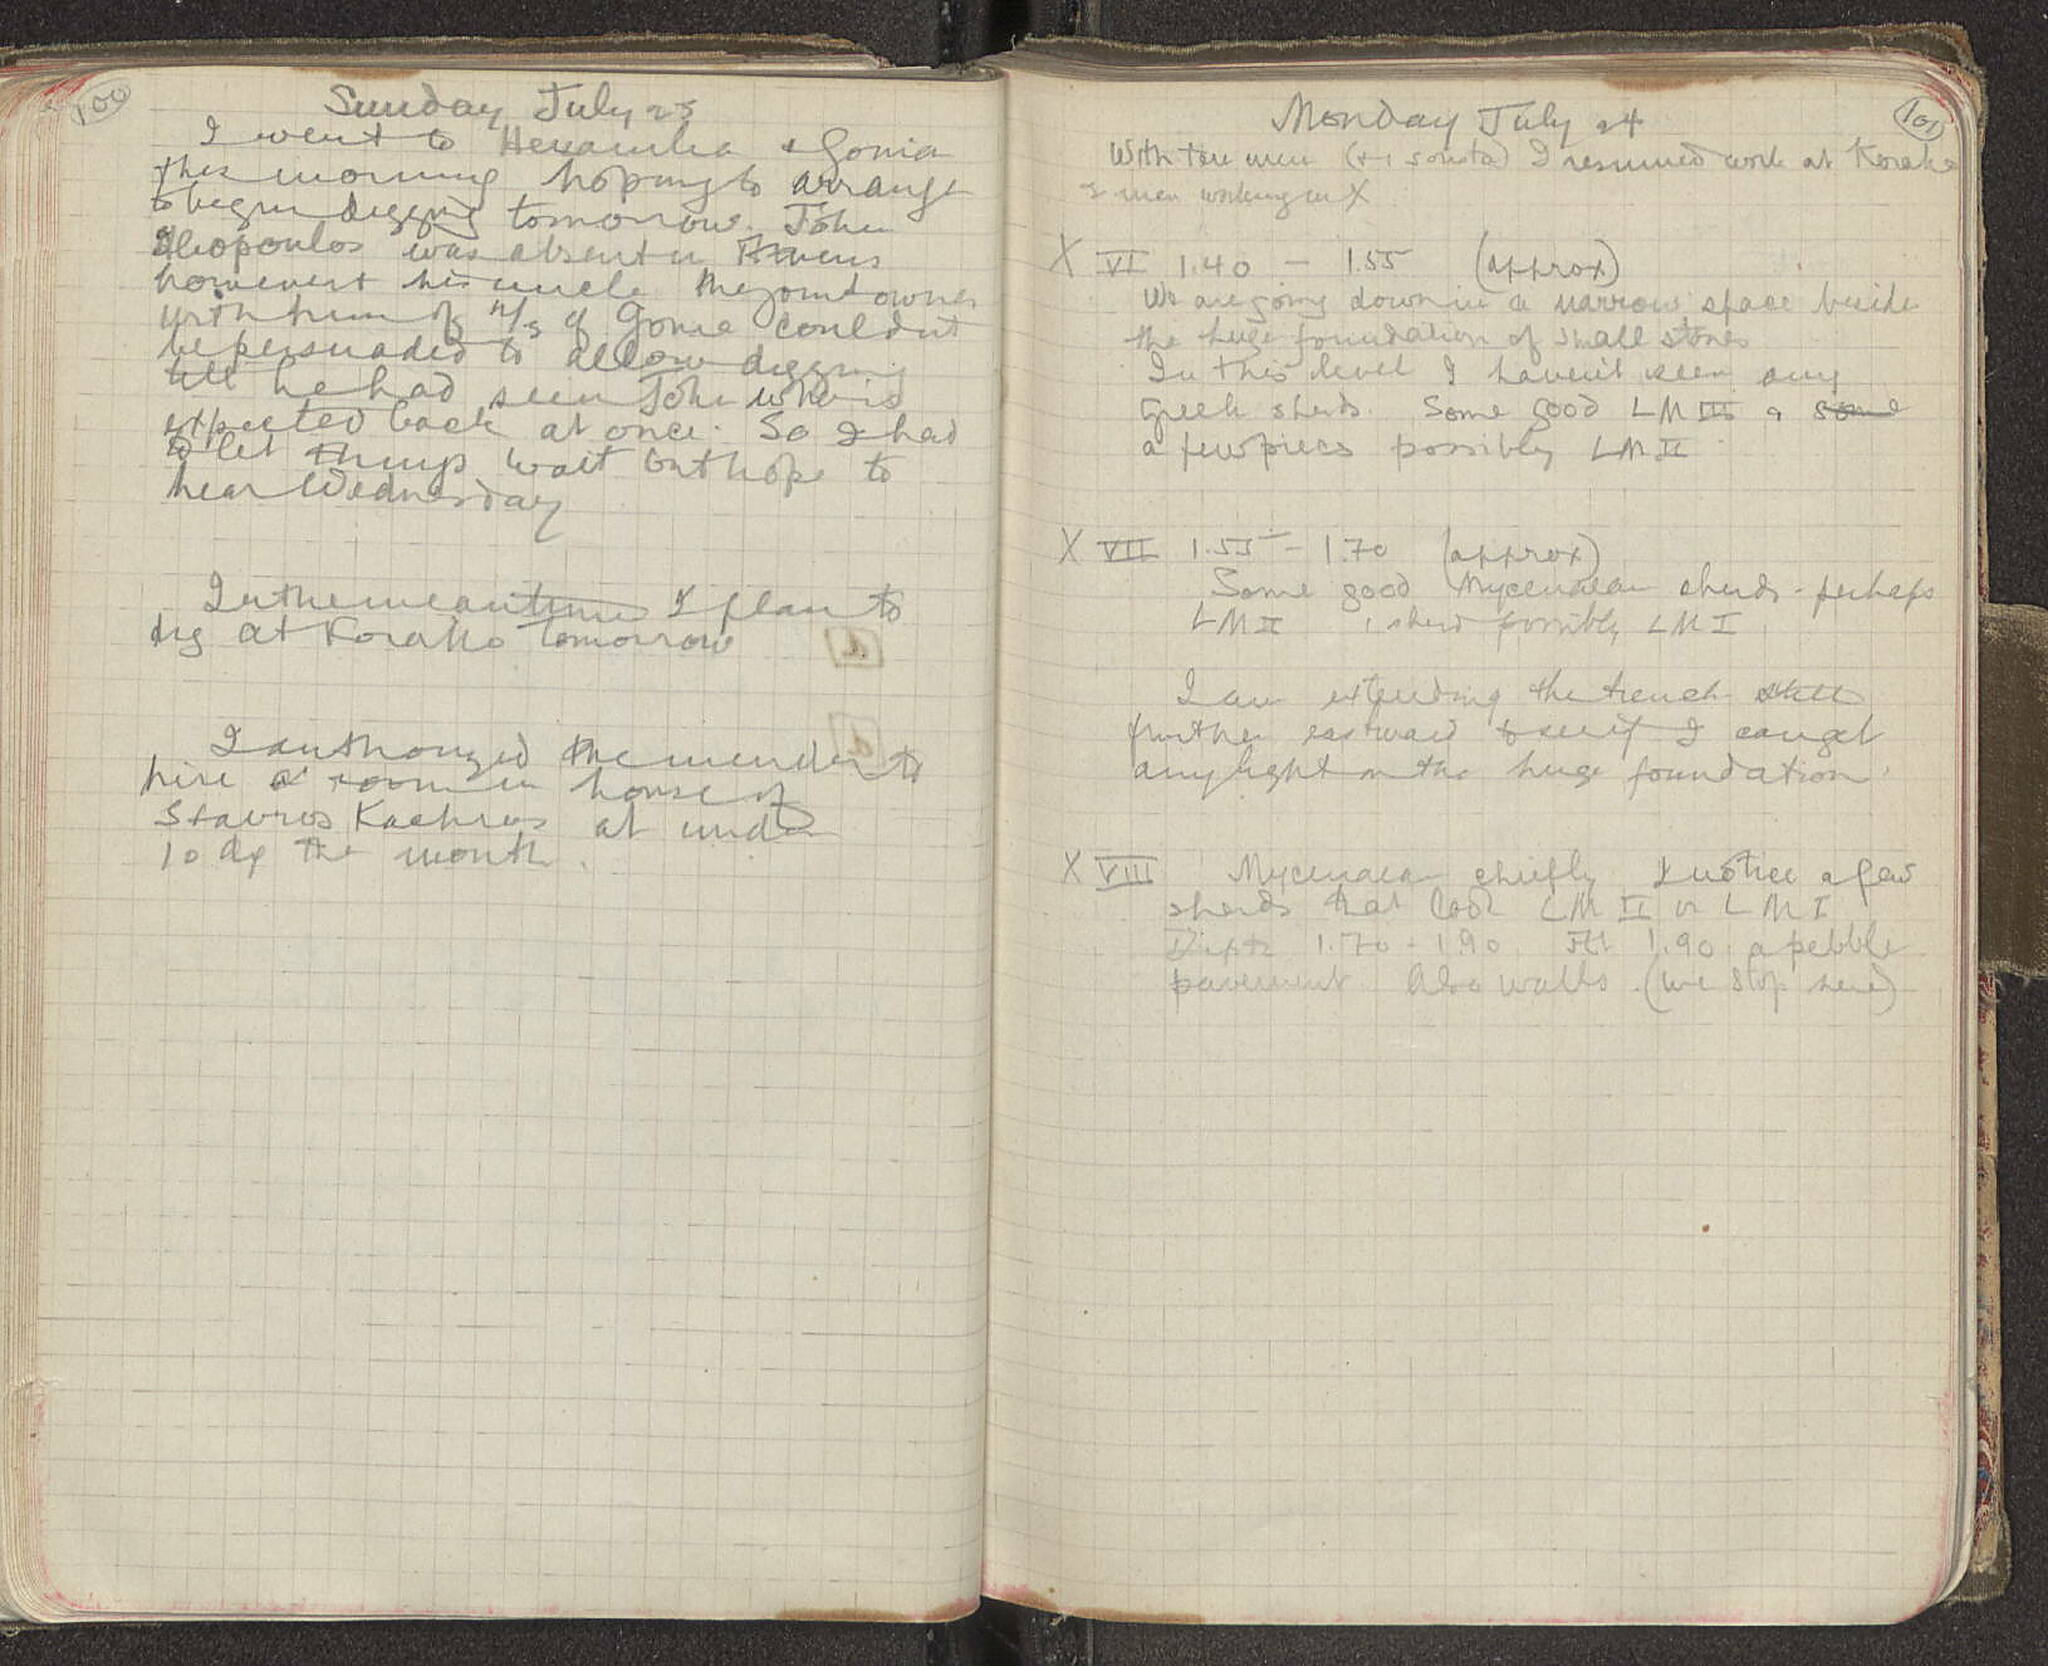 100
Sunday July 23
I went to Hexamilia & Gonia
this morning hoping to arrange
to begin digging tomorrow. John
Iliopoulos was absent in Athens
however & his uncle the joint owner
with him of 4/5 of Gonia couldnt
be persuaded to allow digging
till he had seen John who is
expected back at once. So I had
to let things wait but hope to
hear Wednesday
In the meantime I plan to
dig at Korakou tomorrow
I authorized the mender to
hire a room in house of
Stavros at under
10 dr the month.
101
Monday July 24
With ten men (+ 1 sousta) I resumed work at Korakou
men working in X
X VI 1.40 - 1.55 (approx)
We are going down in a narrow space beside
the huge foundation of small stones
In this level I haven't seen any
Greek sherds. Some good LM III & some
a few pieces possibly LM II
X VII 1.55 - 1.70 (approx)
Some good Mycenaean sherds - perhaps
LM II 1 sherd possibly LM I
I am extending the trench still
further eastward to see if I can get
any light on the huge foundation.
X VIII Mycenaean chiefly I notice a few
sherds that look LM II or LM I
Depth 1.70 - 1.90. At 1.90 a pebble
pavement. Also walls. (we stop here)